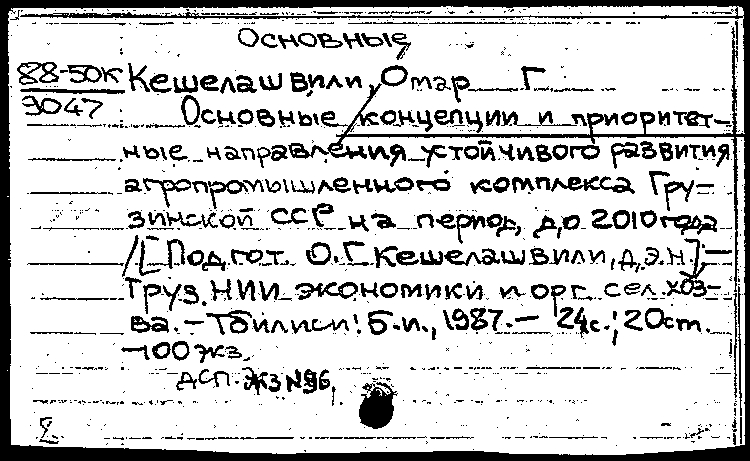 Основные
88-50к Кешелашвили, Омар Г.
3047 Основные концепции и приоритет-
ные направления устойчивого развития
агропромышленного комплекса Гру-
зинской ССР на период до 2010 года
/[Подгот. О.Г. Кешелашвили, д.э.н.];—
Груз. НИИ экономики и орг. сел. хоз-
ва. — Тбилиси: Б.и., 1987. — 24с.; 20см.
—100 экз.
ДСП. Экз №96.